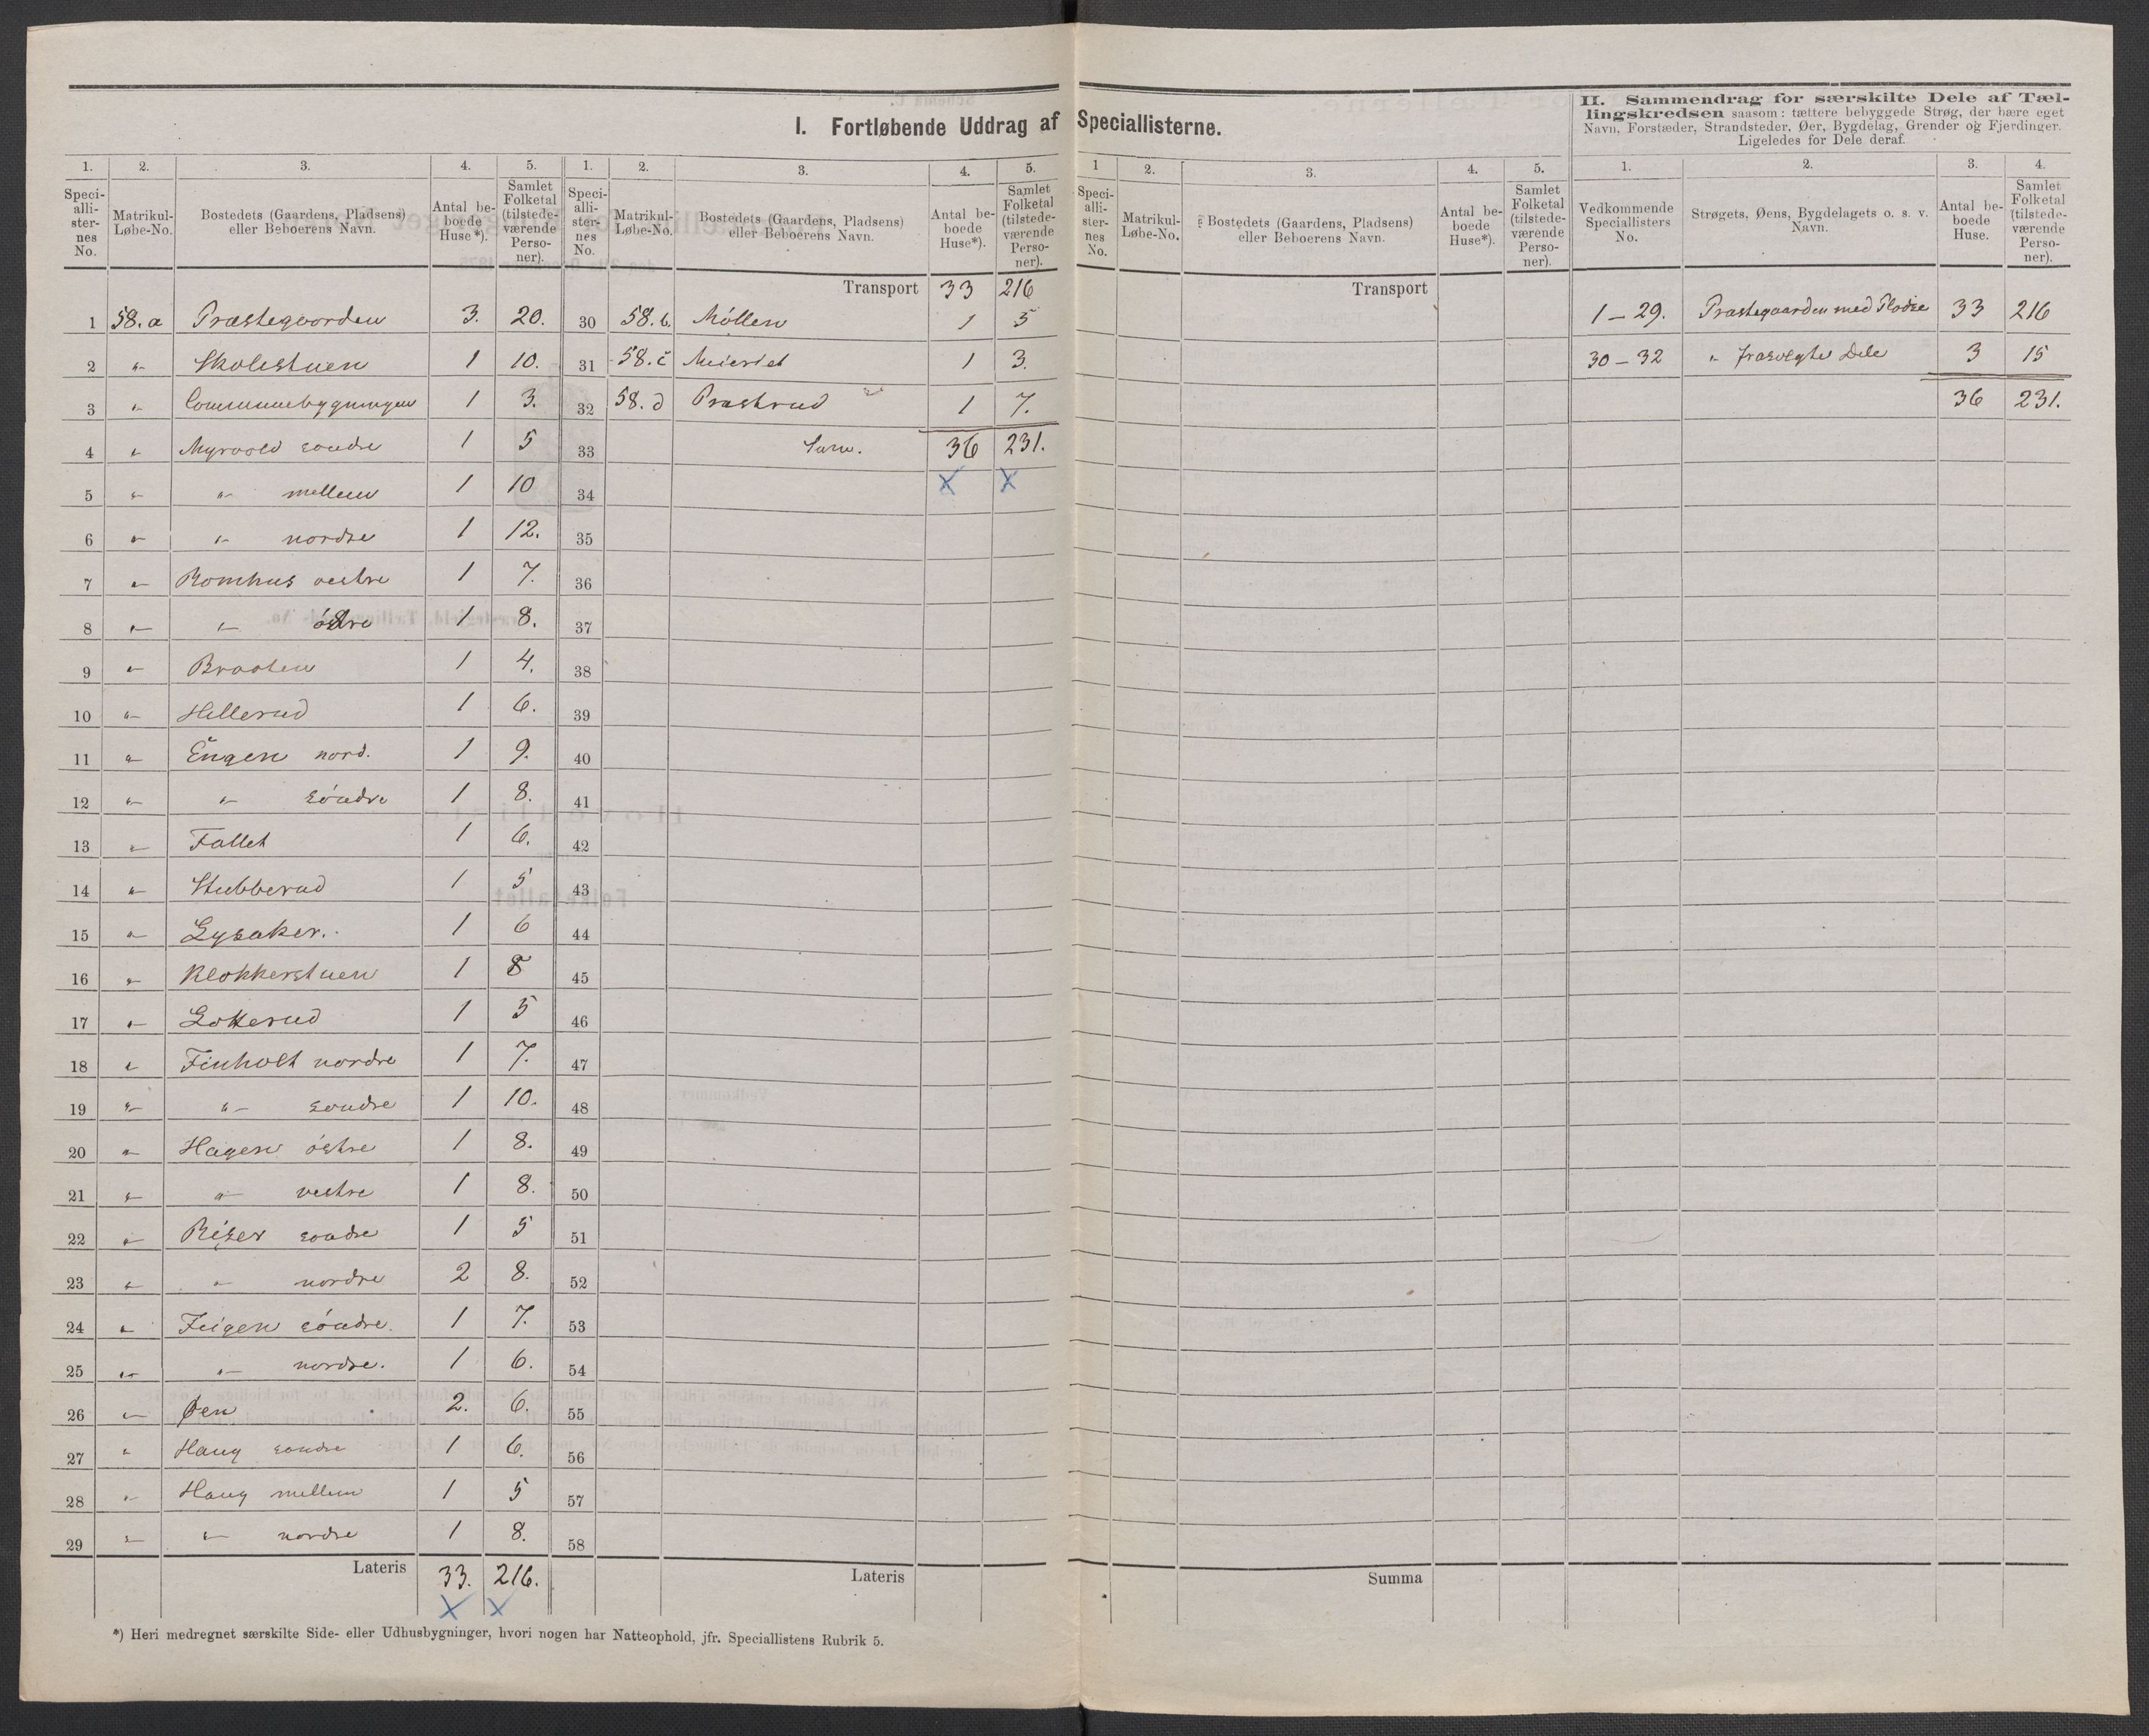 I. Fortløbende Uddrag af Speciallisterne.
II. Sammendrag for særskilte Dele af Tæl-
lingskredsen saasom: tættere bebyggede Strøg, der bære eget
Navn, Forstæder, Strandsteder, Øer, Bygdelag, Grender og Fjerdinger.
Ligeledes for Dele deraf.
1. 2. 3. 4. 5. 1. 2. 3. 4. 5. 1 2. 3. 4. 5. 1. 2. 3. 4.
Speci-
alli-
ster-
nes
No.
Matrikul-
Løbe-No.
Bostedets (Gaardens, Pladsens)
eller Beboerens Navn.
Antal be-
boede
Huse*).
Samlet
Folketal
(tilstede-
værende
Perso-
ner).
Speci-
alli-
ster-
nes
No.
Matrikul-
Løbe-No.
Bostedets (Gaardens, Pladsens)
eller Beboerens Navn.
Antal be-
boede
Huse*).
Samlet
Folketal
(tilstede-
værende
Perso-
ner).
Speci-
alli-
ster-
nes
No.
Matrikul-
Løbe-No.
Bostedets (Gaardens, Pladsens)
eller Beboerens Navn.
Antal be-
boede
Huse*).
Samlet
Folketal
(tilstede-
værende
Perso-
ner).
Vedkommende
Speciallisters
No.
Strøgets, Øens, Bygdelagets o. s. v.
Navn.
Antal be-
boede
Huse.
Samlet
Folketal
(tilstede-
værende
Perso-
ner).
1 58.a Præstegaarden 3. 20.
2 " Skolestuen 1 10.
3 " Communebygningen 1 3.
4 " Myrvold søndre 1 5
5 " " mellem 1 10
6 " " nordre 1 12.
7 " Romhus vestre 1 7.
8 " " östre 1 8.
9 " Braaten 1 4.
10 " Hillerud 1 6.
11 " Engen nord. 1 9.
12 " " söndre 1 8.
13 " Fallet 1 6.
14 " Stubberud 1 5
15 " Lysaker. 1 6
16 " Klokkerstuen 1 8
17 " Lokkerud 1 5
18 " Finholt nordre 1 7.
19 " " søndre 1 10.
20 " Hagen östre 1 8.
21 " " vestre 1 8.
22 " Riser søndre 1 5
23 " " nordre 2 8.
24 " Feigen söndre. 1 7.
25 " " nordre. 1 6.
26 " Øen 2. 6.
27 " Haug søndre 1 6.
28 " Haug mellem 1 5
29 " " nordre 1 8.
Lateris 33. 216.
X X
Transport 33 216
30 58.b. Möllen 1 5
31 58.c Meieriet 1 3.
32 58.d Præstrud 1 7.
33 Sum. 36 231.
34 X X
35
36
37
38
39
40
41
42
43
44
45
46
47
48
49
50
51
52
53
54
55
56
57
58
Lateris
Transport
Summa
1 – 29. Præstegaarden med Pladse 33 216
30 – 32 " frasolgte Dele 3 15
36 231.
*) Heri medregnet særskilte Side- eller Udhusbygninger, hvori nogen har Natteophold, jfr. Speciallistens Rubrik 5.